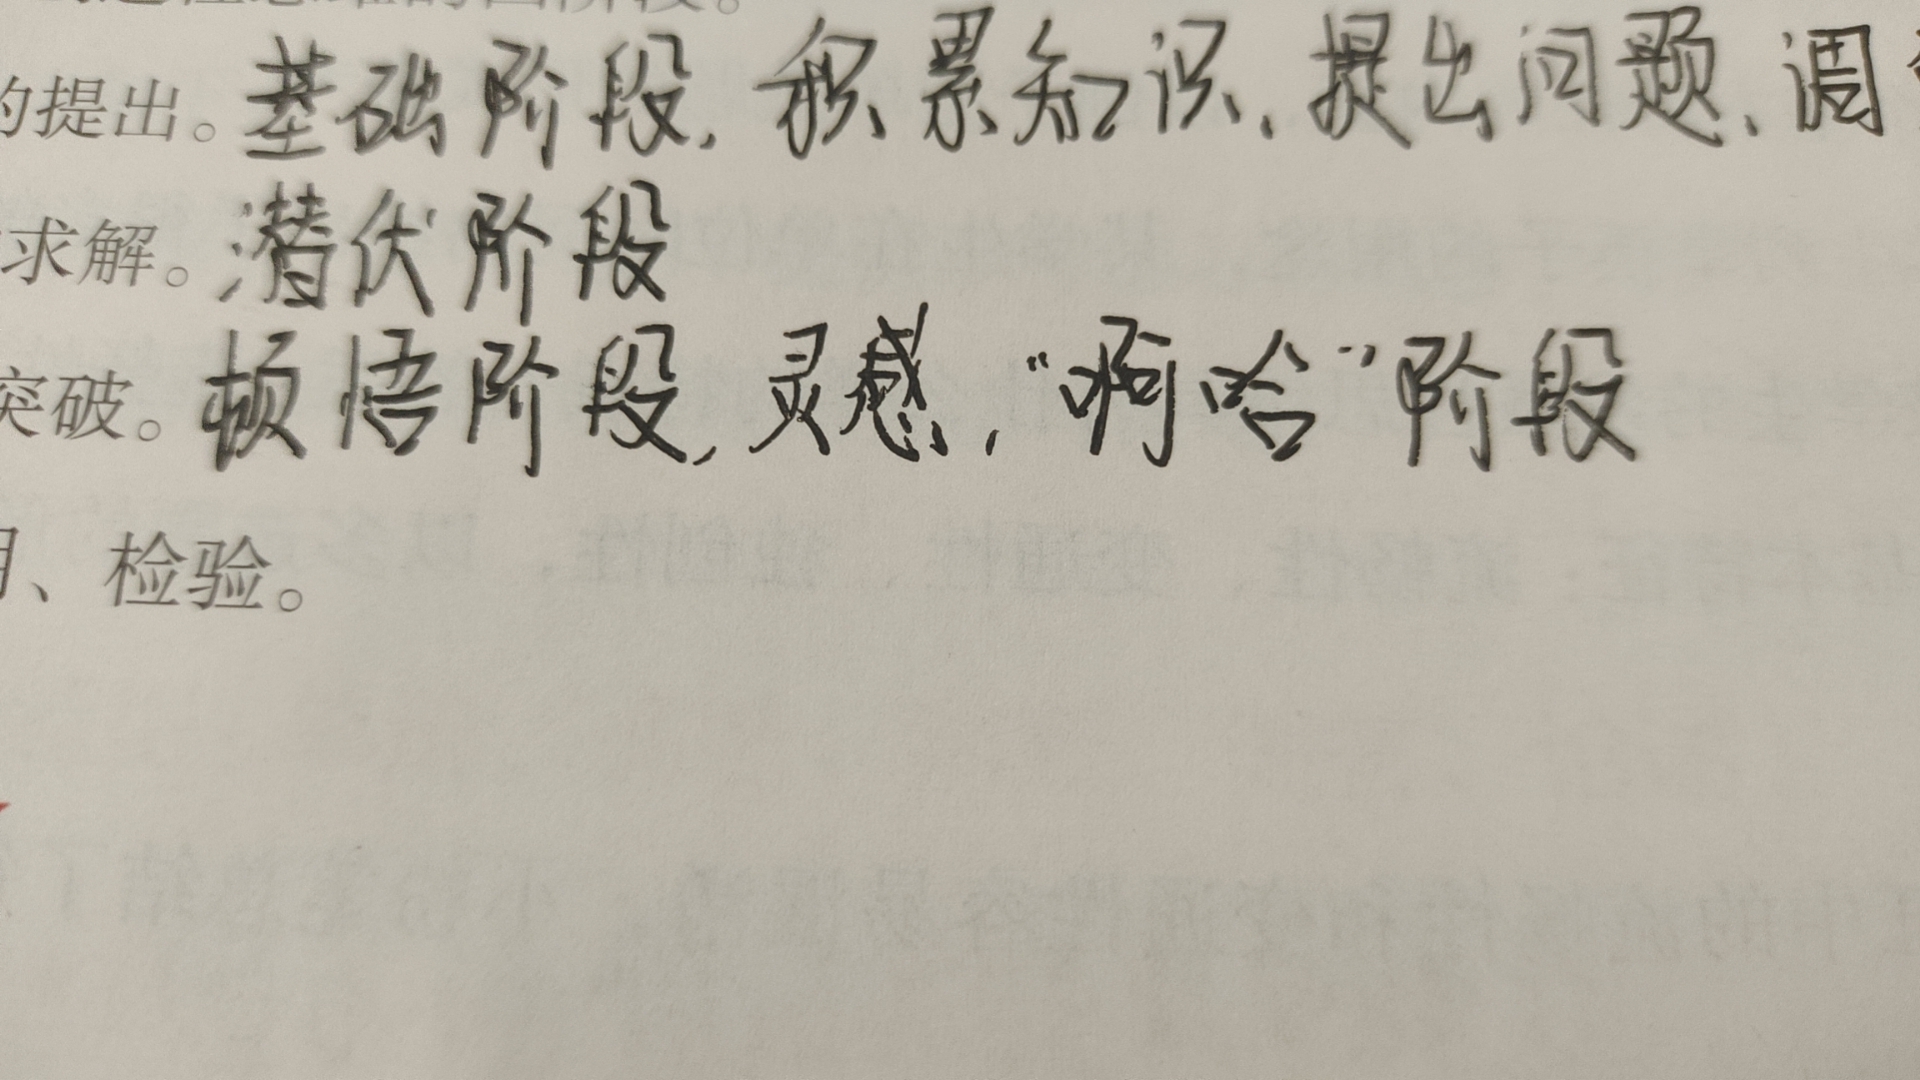 的提出。基础阶段，积累知识、提出问题、调
求解。潜伏阶段
突破。顿悟阶段，灵感，“啊哈”阶段
、检验。